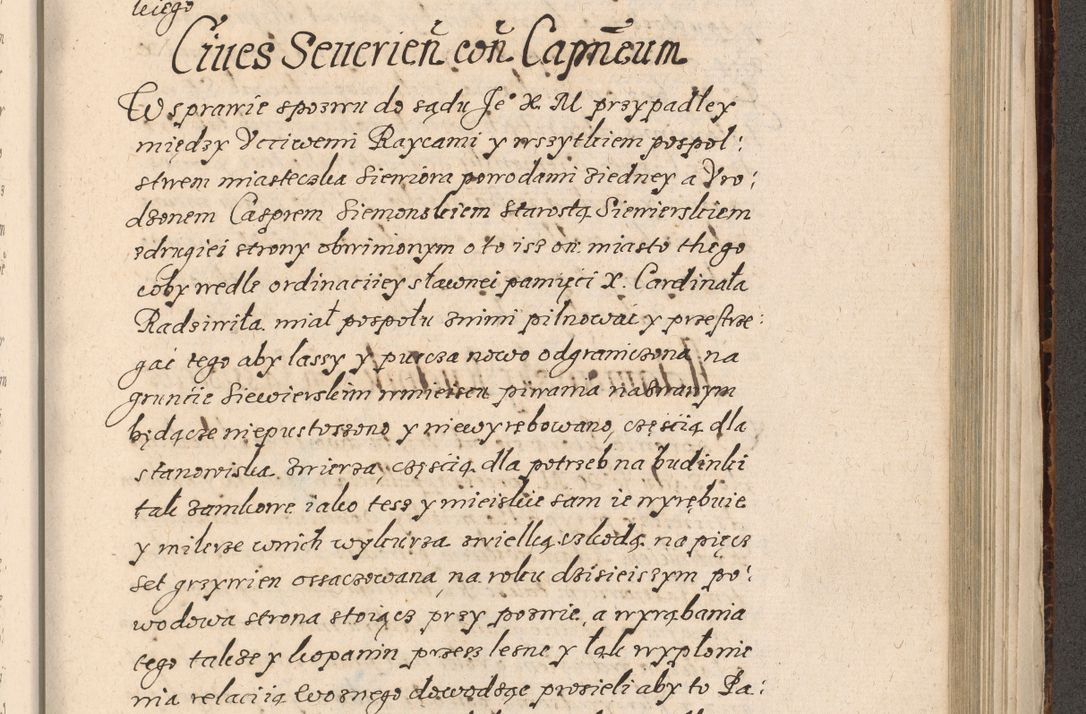 kiego
Ciues Seuerień coń Capńeum
W sprawie spozwu do sądu Je° X. M przypadłey
między Vcciwemi Raycami y wszytkiem pospol:
stwem miasteczka Siewiora powodami ziedney a Vro:
dzonem Casprem Siemonskiem starostą Siewierskiem
zdrugiei strony obwinionym o to isz on miasto thego
coby wedle ordinaciiey sławnei pamięci X. Cardinała
Radziwiła miał pospołu znimi pilnować y przestrze:
gać tego aby lassy y puscza nowo odgraniczona na
gruncie Siewierskim wmieiscu piwania nazwanym
będącze niepustoszono y niewyrębowano, częścią dla
stanowiska zwierza, częścią dla potrzeb na budinki
tak zamkowe iako tesz y mieiskie sam ie wyrębuie
y milerze wnich wykurza zwielką szkodą na pięcz
set grzywien oszaczowana, na roku dzisieiszym po:
wodowa strona stoiącz przy pozwie, a wyrąbania
tego takze y kopanin przesz lesne y łąk wypłonie
nia relaciią Woznego dowodząc prosieli aby to Pa: